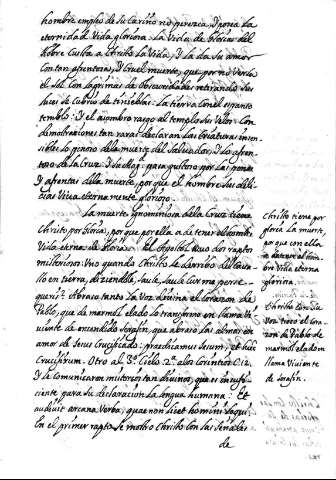 hombre empleo de su cariño no perezca, y posea la
eterna vida gloriosa. La Vida de gloria del
hombre cuesta a Christo la Vida, y la da su amor
con tan afrentosa, y cruel muerte, que por no verla
el Sol con lagrimas de obscuridades retirando sus
luces se cubrio de tinieblas. La tierra con el espanto
temblo: y el asombro rasgo al templo su Velo. Con
demostraciones tan raras declaran las criaturas insen-
sibles lo penoso de la muerte del Salvador, y lo afren-
toso de la Cruz. Y su Mag. pasa gustoso por las penas
y afrentas de la muerte, porque el hombre sus deli-
cias viva eternamente glorioso.
La muerte ignominiosa de la Cruz tiene
Christo por gloria, porque por ella a de tener el hombre
Vida eterna de gloria. El Apostol tuvo dos raptos
misteriosos. Uno quando Christo le derribo del Cava-
llo en tierra, diziendole, Saule, Saule cur me perse-
queris? Obrasa tanto la Voz divina el corazon de
Pablo, que de marmol elado lo transformo en llama Vi-
viente de encendido Serafin, que abrasó las almas en
amor de Jesus Crucificado: praedicamus Jesum, et hunc
Crucifixum. Otro al 3º Cielo. 2ª a los Corintios C. 12.
Y le comunicaron misterios tan divinos, que es insufi-
ciente para su declaracion la lengua humana: Et
audivit arcana Verba, quae non licet homini loqui.
En el primer rapto se mostro Christo con las señales
de
Christo tiene por
gloria la muerte,
porque con ella
a de tener el hom-
bre Vida eterna
gloriosa.
Christo con su
Voz trocó el cora-
zon de Pablo de
marmol elado en
llama Viviente
de Serafin.